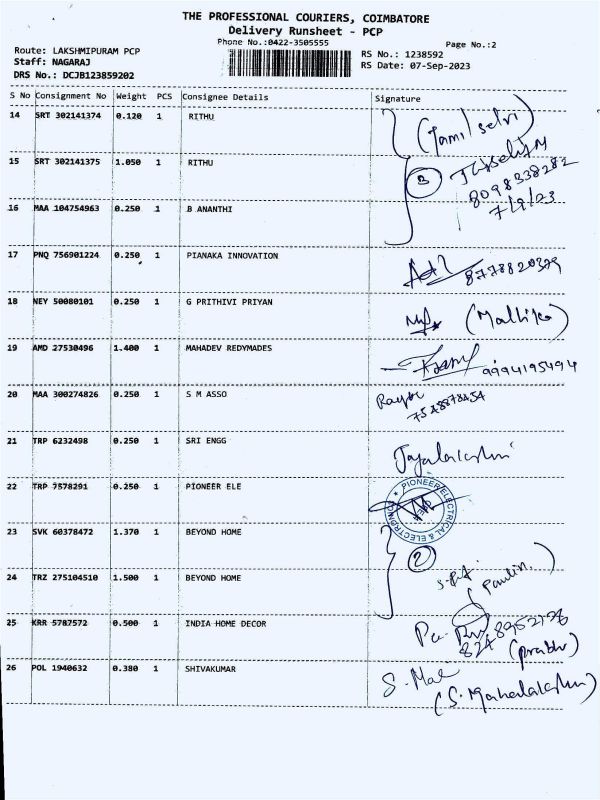 THE PROFESSIONAL COURIERS, COIMBATORE
Delivery Runsheet - PCP
Phone No.:0422-3505555
Page No.:2
Route: LAKSHMIPURAM PCP
Staff: NAGARAJ
DRS No.: DCJB123859202
RS No.: 1238592
RS Date: 07-Sep-2023
S No Consignment No Weight PCS Consignee Details Signature
14 SRT 302141374 0.120 1 RITHU (Tamil selvi)
15 SRT 302141375 1.050 1 RITHU
3
8098338282
7/9/23
16 MAA 104754963 0.250 1 B ANANTHI
17 PNQ 756901224 0.250 1 PIANAKA INNOVATION 8778820379
18 NEY 50080101 0.250 1 G PRITHIVI PRIYAN (Mallika)
19 AMD 27530496 1.400 1 MAHADEV REDYMADES 9994195494
20 MAA 300274826 0.250 1 S M ASSO
7548878454
21 TRP 6232498 0.250 1 SRI ENGG Jayalakshmi
22 TRP 7578291 0.250 1 PIONEER ELE
PIONEER ELECTRICAL & ELECTRONICS
23 SVK 60378472 1.370 1 BEYOND HOME
2
24 TRZ 275104510 1.500 1 BEYOND HOME
(Paulin.)
25 KRR 5787572 0.500 1 INDIA HOME DECOR
8248952126
(prabhu)
26 POL 1940632 0.380 1 SHIVAKUMAR
(S. Mahalakshmi)